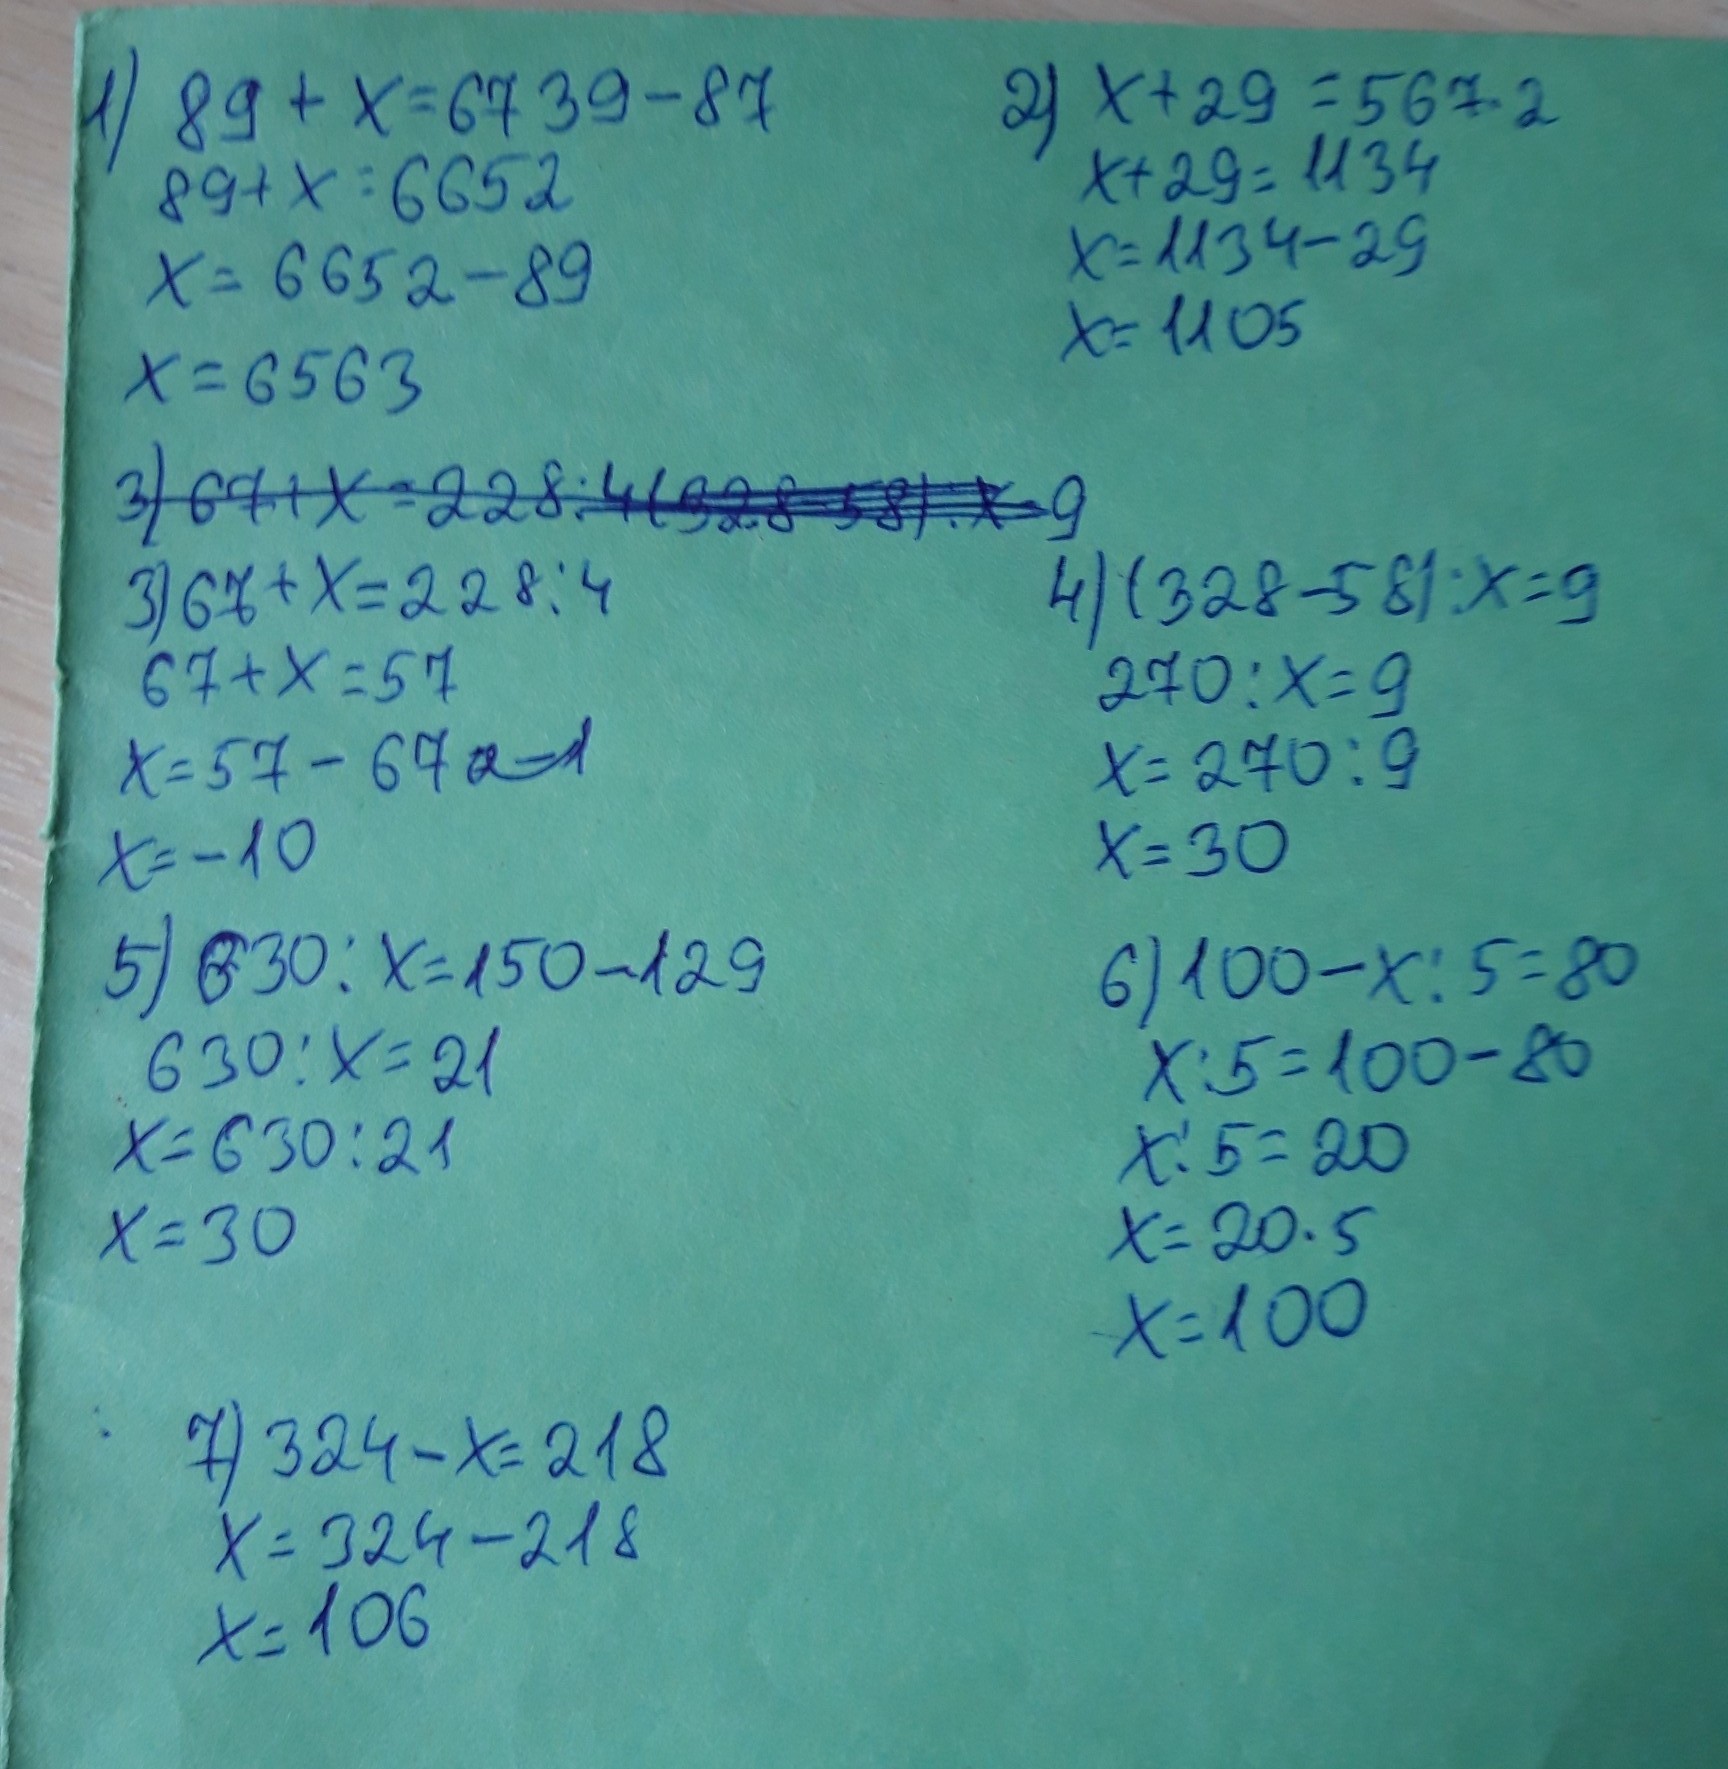 1) 89 + x = 6739 - 87
89 + x = 6652
x = 6652 - 89
x = 6563
2) x + 29 = 567 · 2
x + 29 = 1134
x = 1134 - 29
x = 1105
3) 67 + x = 228 : 4 (328 - 58) : x = 9
3) 67 + x = 228 : 4
67 + x = 57
x = 57 - 67
x = -10
4) (328 - 58) : x = 9
270 : x = 9
x = 270 : 9
x = 30
5) 630 : x = 150 - 129
630 : x = 21
x = 630 : 21
x = 30
6) 100 - x : 5 = 80
x : 5 = 100 - 80
x : 5 = 20
x = 20 · 5
x = 100
7) 324 - x = 218
x = 324 - 218
x = 106